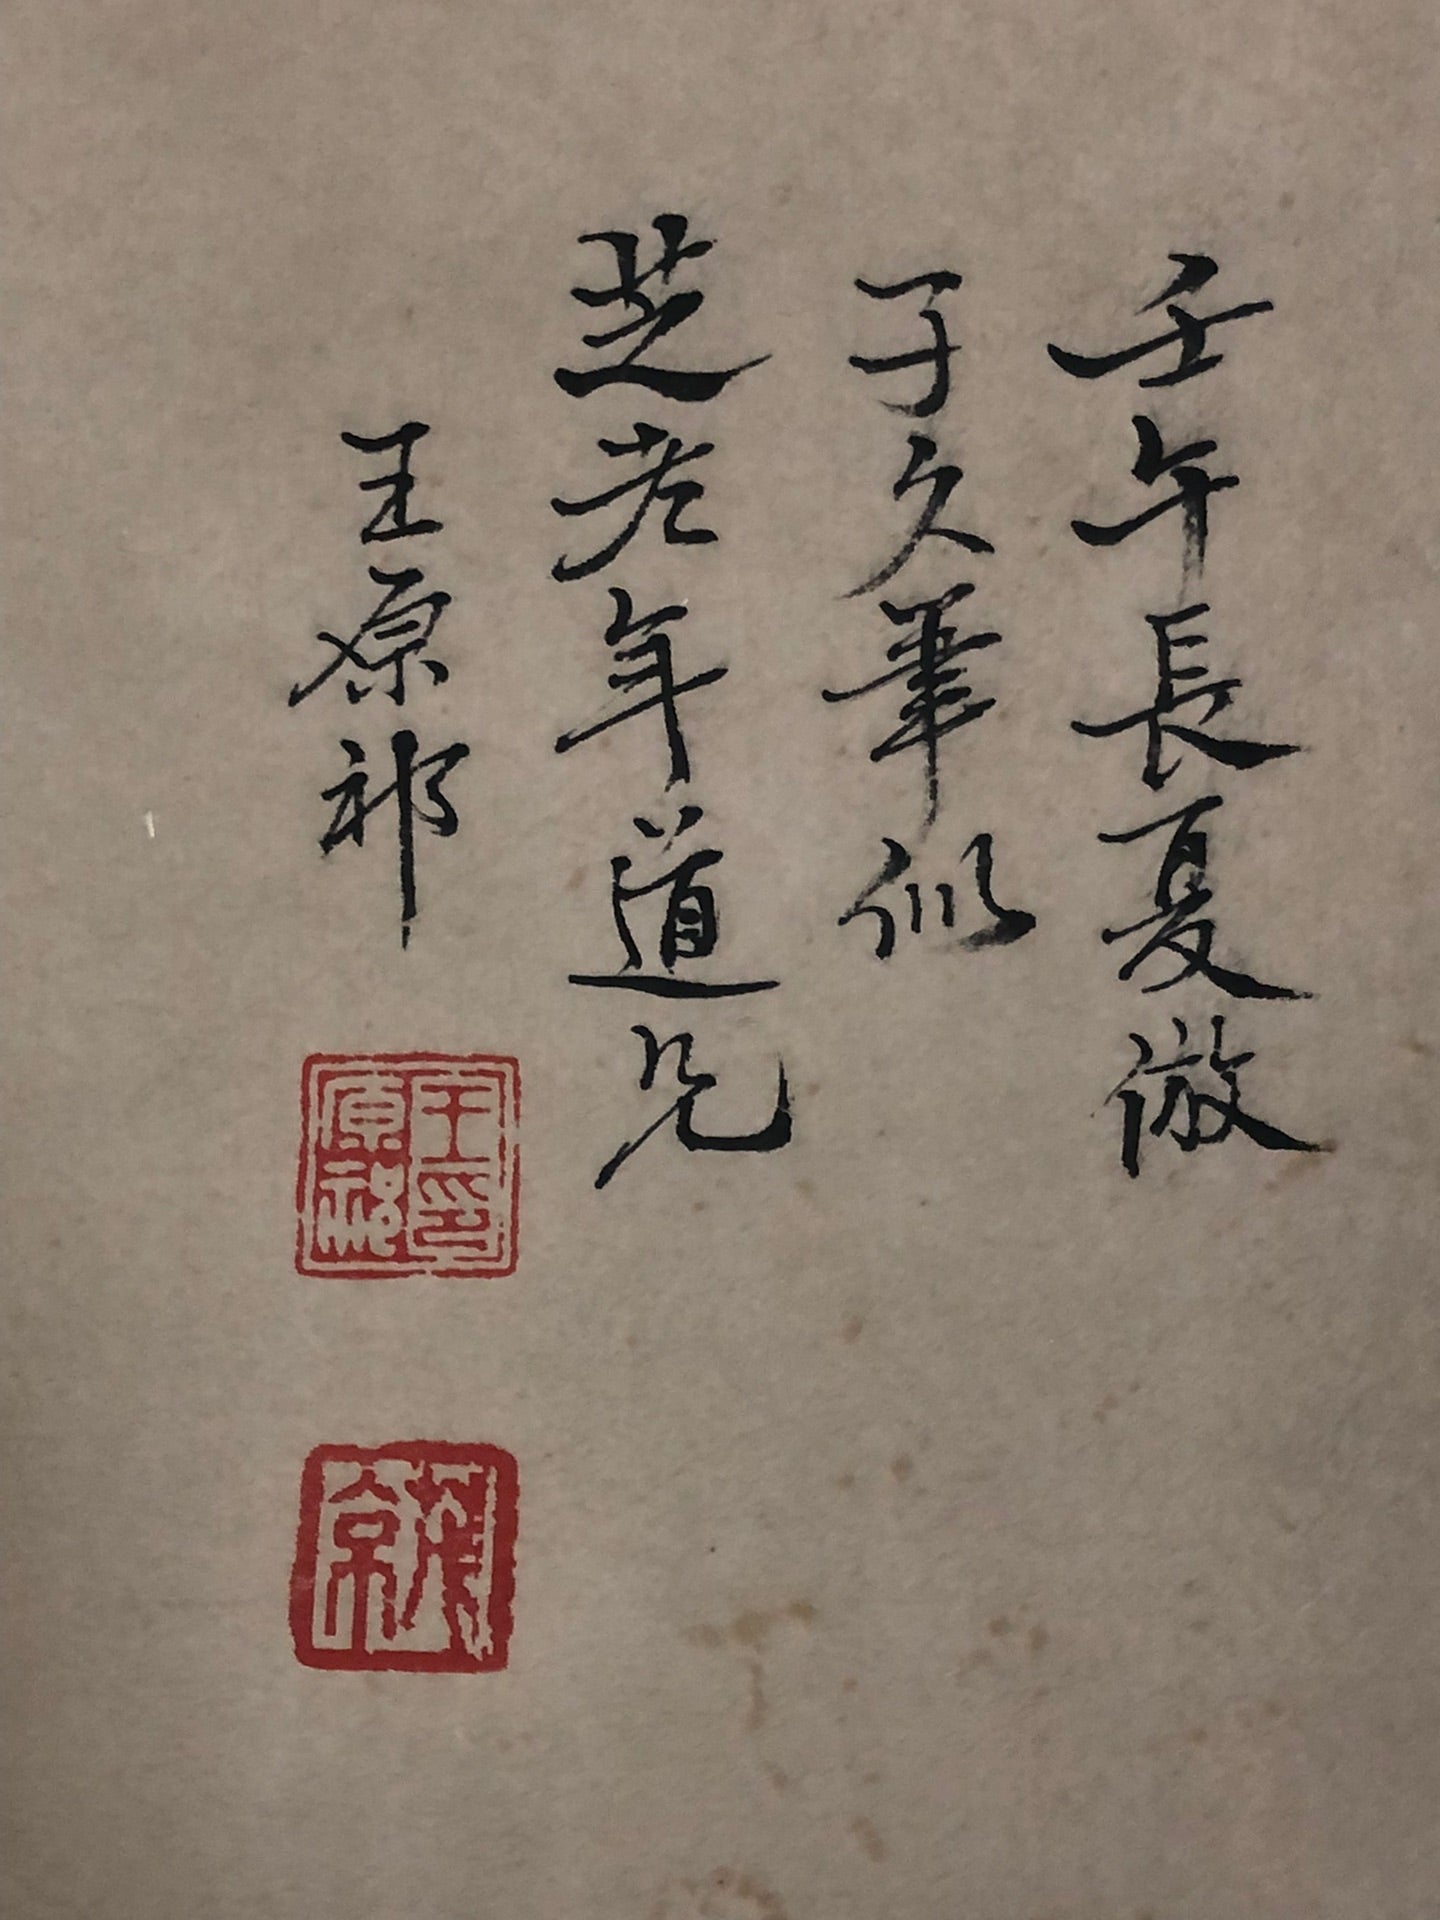 壬午長夏倣
子久筆似
芝老年道兄
王原祁
王原祁印
麓臺